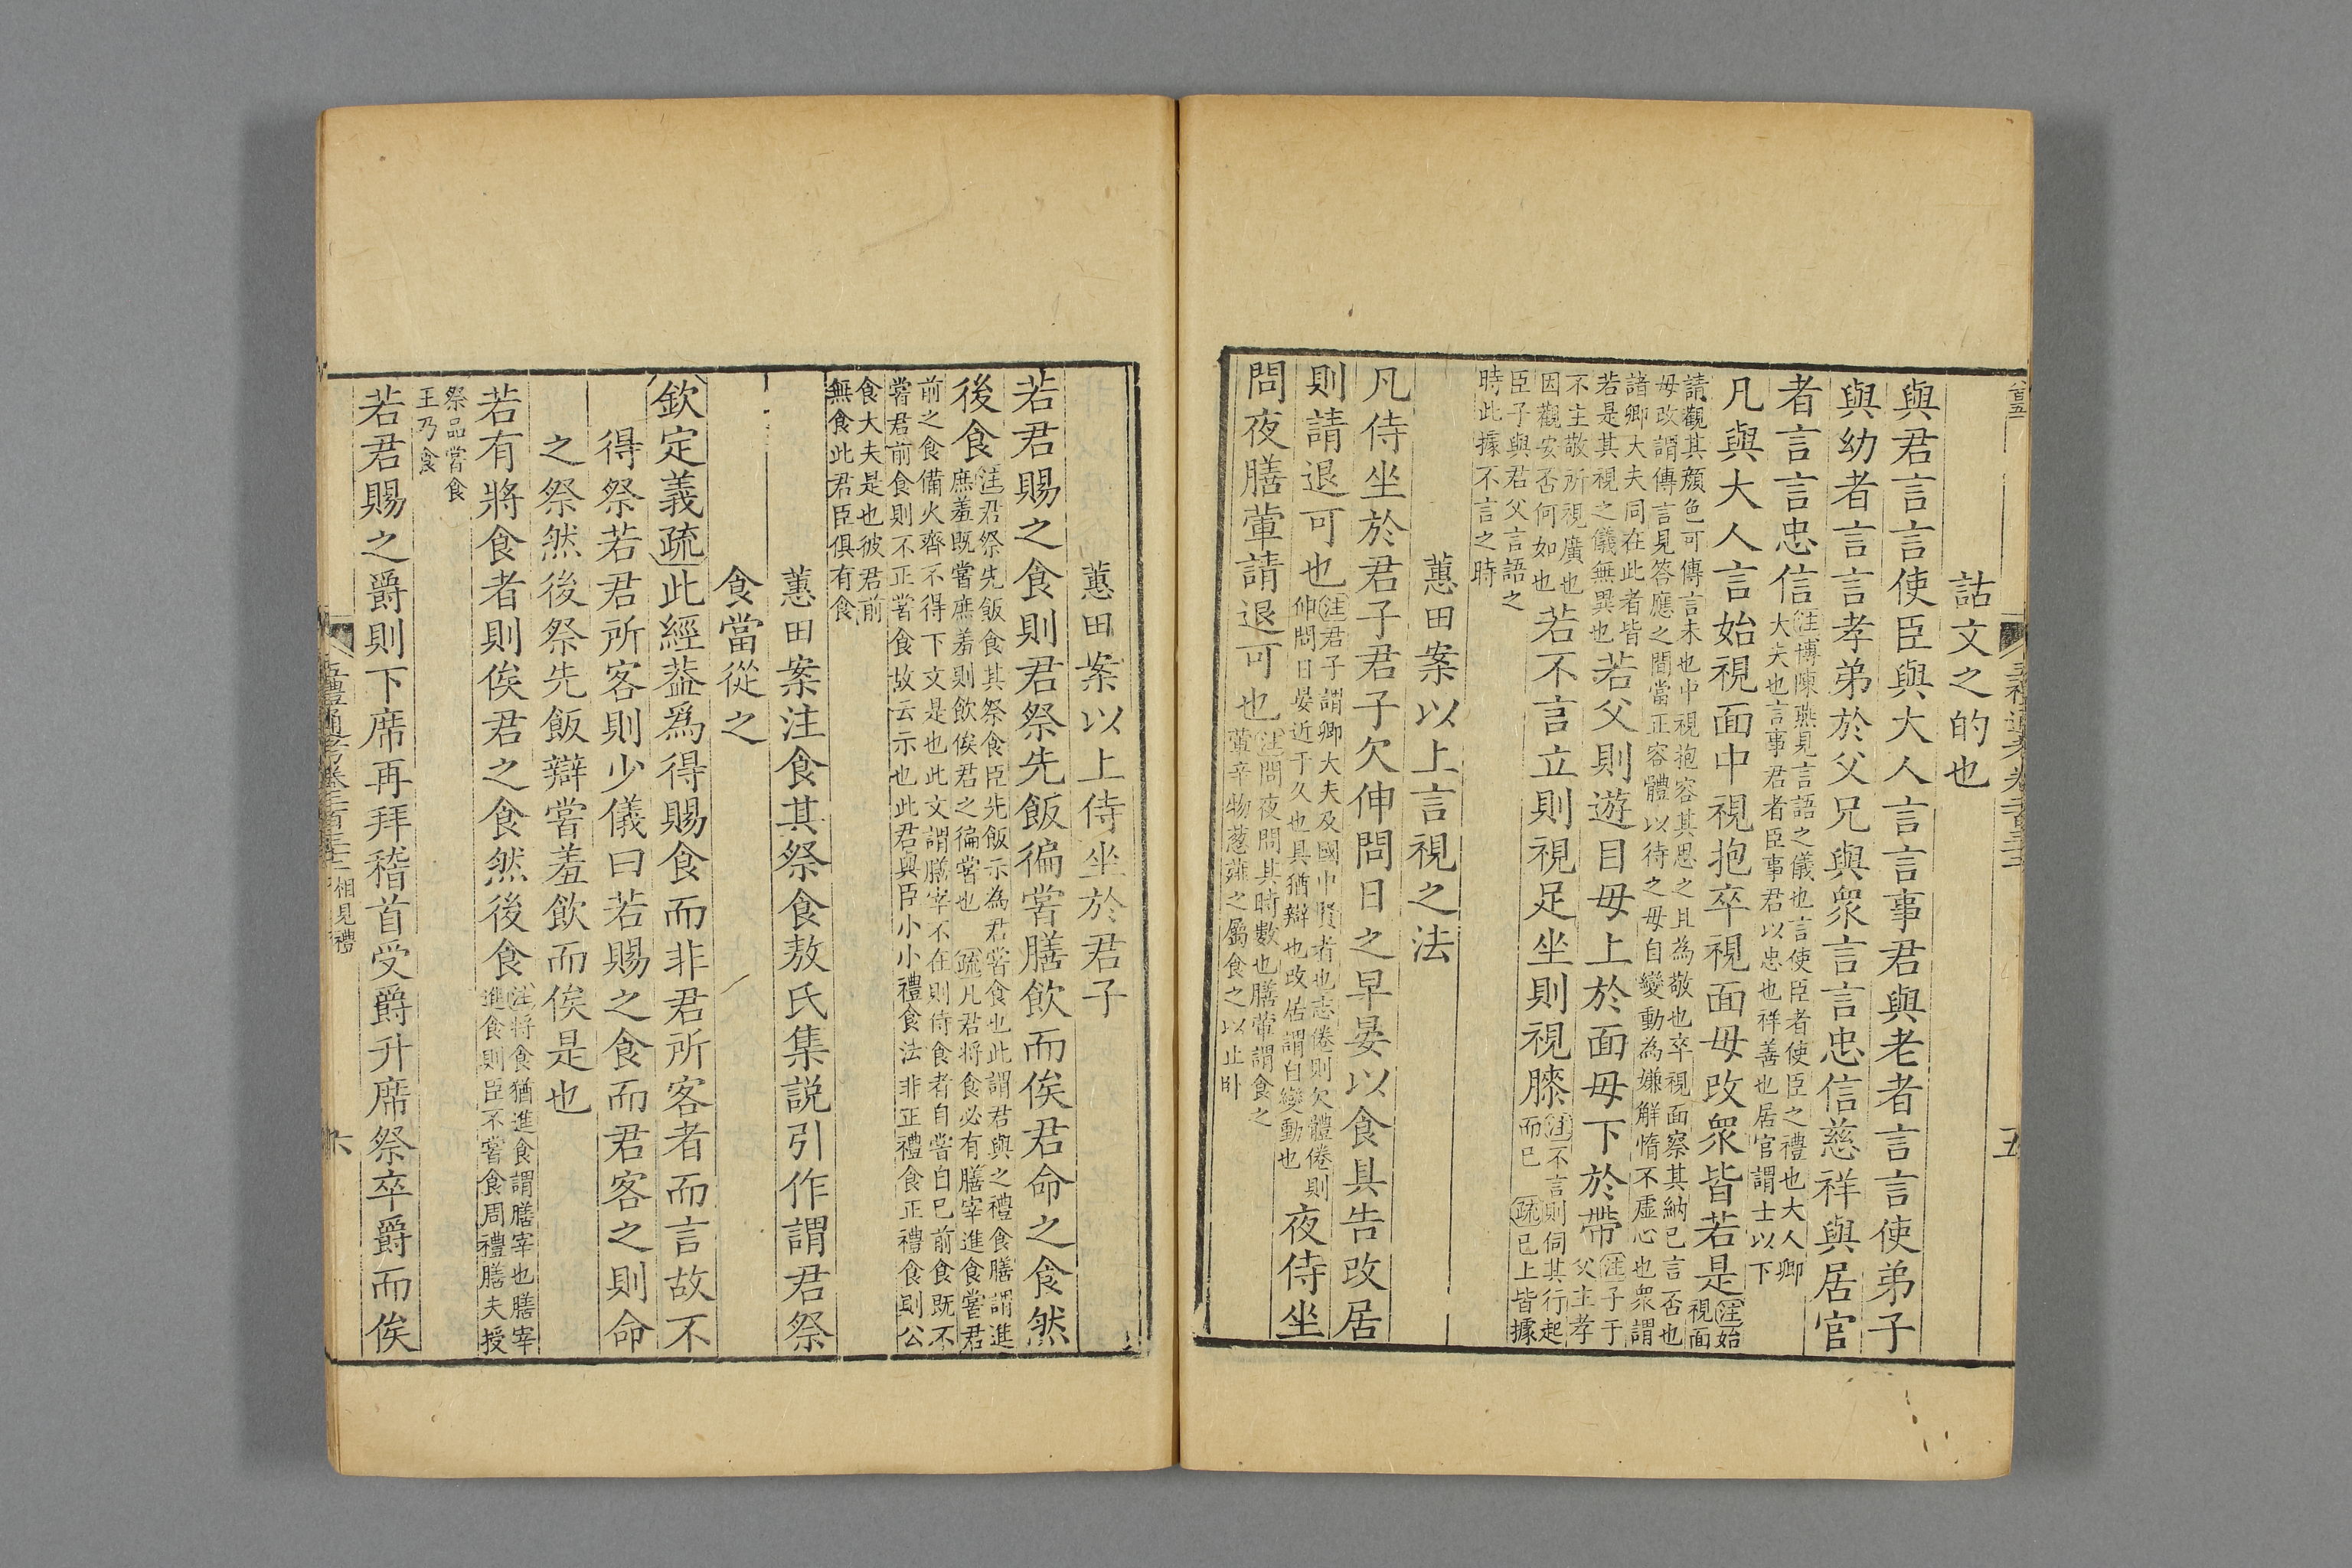 詁文之的也
與君言言使臣與大人言言事君與老者言言使弟子
與幼者言言孝弟於父兄與衆言言忠信慈祥與居官
者言言忠信
注博陳燕見言語之儀也言使臣者使臣之禮也大人卿
大夫也言事君者臣事君以忠也祥善也居官謂士以下
凡與大人言始視面中視抱卒視面毋改衆皆若是
注始
視面
請觀其顏色可傳言未也中視抱容其思之且為敬也卒視面察其納己言否也
毋改謂傳言見答應之間當正容體以待之毋自變動為嫌解惰不虛心也衆謂
諸卿大夫同在此者皆
若是其視之儀無異也
若父則遊目毋上於面毋下於帶
注子于
父主孝
不主敬所視廣也
因觀安否何如也
若不言立則視足坐則視膝
注不言則伺其行起
而已 疏已上皆據
臣子與君父言語之
時此據不言之時
蕙田案以上言視之法
凡侍坐於君子君子欠伸問日之早晏以食具告改居
則請退可也
注君子謂卿大夫及國中賢者也志倦則欠體倦則
伸問日晏近于久也具猶辯也改居謂自變動也
夜侍坐
問夜膳葷請退可也
注問夜問其時數也膳葷謂食之
葷辛物葱薤之屬食之以止臥
五
蕙田案以上侍坐於君子
若君賜之食則君祭先飯徧嘗膳飲而俟君命之食然
後食
注君祭先飯食其祭食臣先飯示為君嘗食也此謂君與之禮食膳謂進
庶羞既嘗庶羞則飲俟君之徧嘗也 疏凡君將食必有膳宰進食嘗君
前之食備火齊不得下文是也此文謂膳宰不在則侍食者自嘗自已前食既不
嘗君前食則不正嘗食故云示也此君與臣小小禮食法非正禮食正禮食則公
食大夫是也彼君前
無食此君臣俱有食
蕙田案注食其祭食敖氏集説引作謂君祭
食當從之
欽定義疏此經葢爲得賜食而非君所客者而言故不
得祭若君所客則少儀曰若賜之食而君客之則命
之祭然後祭先飯辯嘗羞飲而俟是也
若有將食者則俟君之食然後食
注將食猶進食謂膳宰也膳宰
進食則臣不嘗食周禮膳夫授
祭品嘗食
王乃食
若君賜之爵則下席再拜稽首受爵升席祭卒爵而俟
五禮通考卷二百三十二 相見禮
六